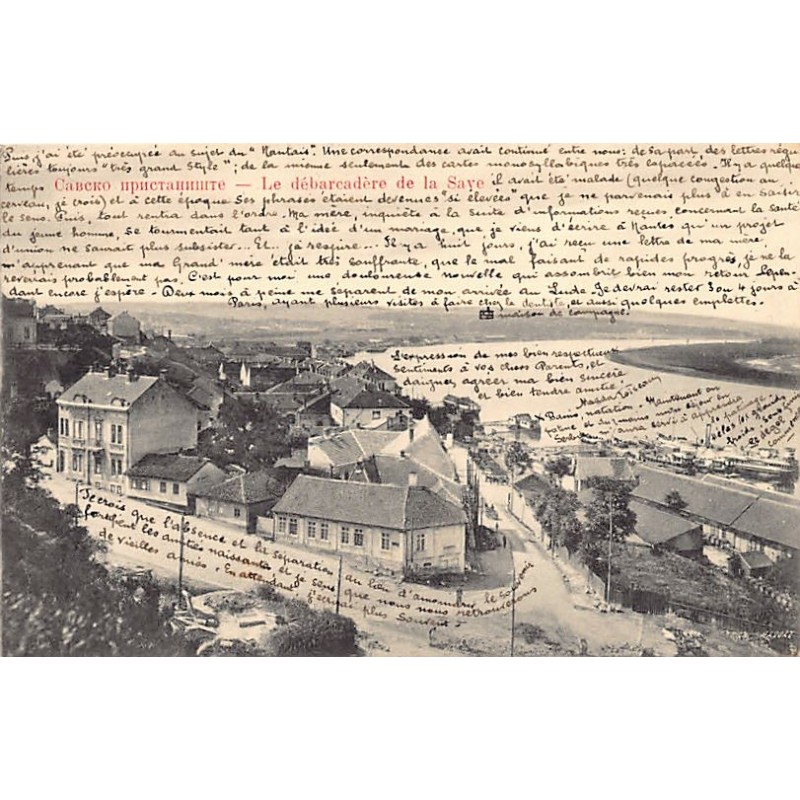 Puis j'ai été préoccupée au sujet du "Nantais". Une correspondance avait continué entre nous: de sa part des lettres régu-
lières toujours "très grand style"; de la mienne seulement des cartes monosyllabiques très espacées. Il y a quelque
temps
Савско пристаниште — Le débarcadère de la Save
il avait été malade (quelque congestion au
cerveau, je crois) et à cette époque ses phrases étaient devenues "si élevées" que je ne parvenais plus à en saisir
le sens. Puis, tout rentra dans l'ordre. Ma mère, inquiète à la suite d'informations reçues concernant la santé
du jeune homme, se tourmentait tant à l'idée d'un mariage, que je viens d'écrire à Nantes qu'un projet
d'union ne saurait plus subsister... Et... je respire... Il y a huit jours, j'ai reçu une lettre de ma mère,
m'apprenant que ma Grand'mère était très souffrante, que le mal faisant de rapides progrès, je ne la
reverrais probablement pas. C'est pour moi une douloureuse nouvelle qui assombrit bien mon retour. Cepen-
dant encore j'espère. - Deux mois à peine me séparent de mon arrivée au Lude. Je devrai rester 3 ou 4 jours à
Paris, ayant plusieurs visites à faire chez le dentiste, et aussi quelques emplettes.
maison de campagne.
L'expression de mes bien respectueux
sentiments à vos chers Parents, et
daignez agréer ma bien sincère
et bien tendre amitié.
Bains, natation. Maintenant on
et du moins notre séjour en
aura servi à apprendre
Je crois que l'absence et la séparation au lieu d'amoindrir le souvenir
fortifient les amitiés naissantes et je sens que nous nous retrouverons
de vieilles amies. En attendant j'écrirai plus souvent.